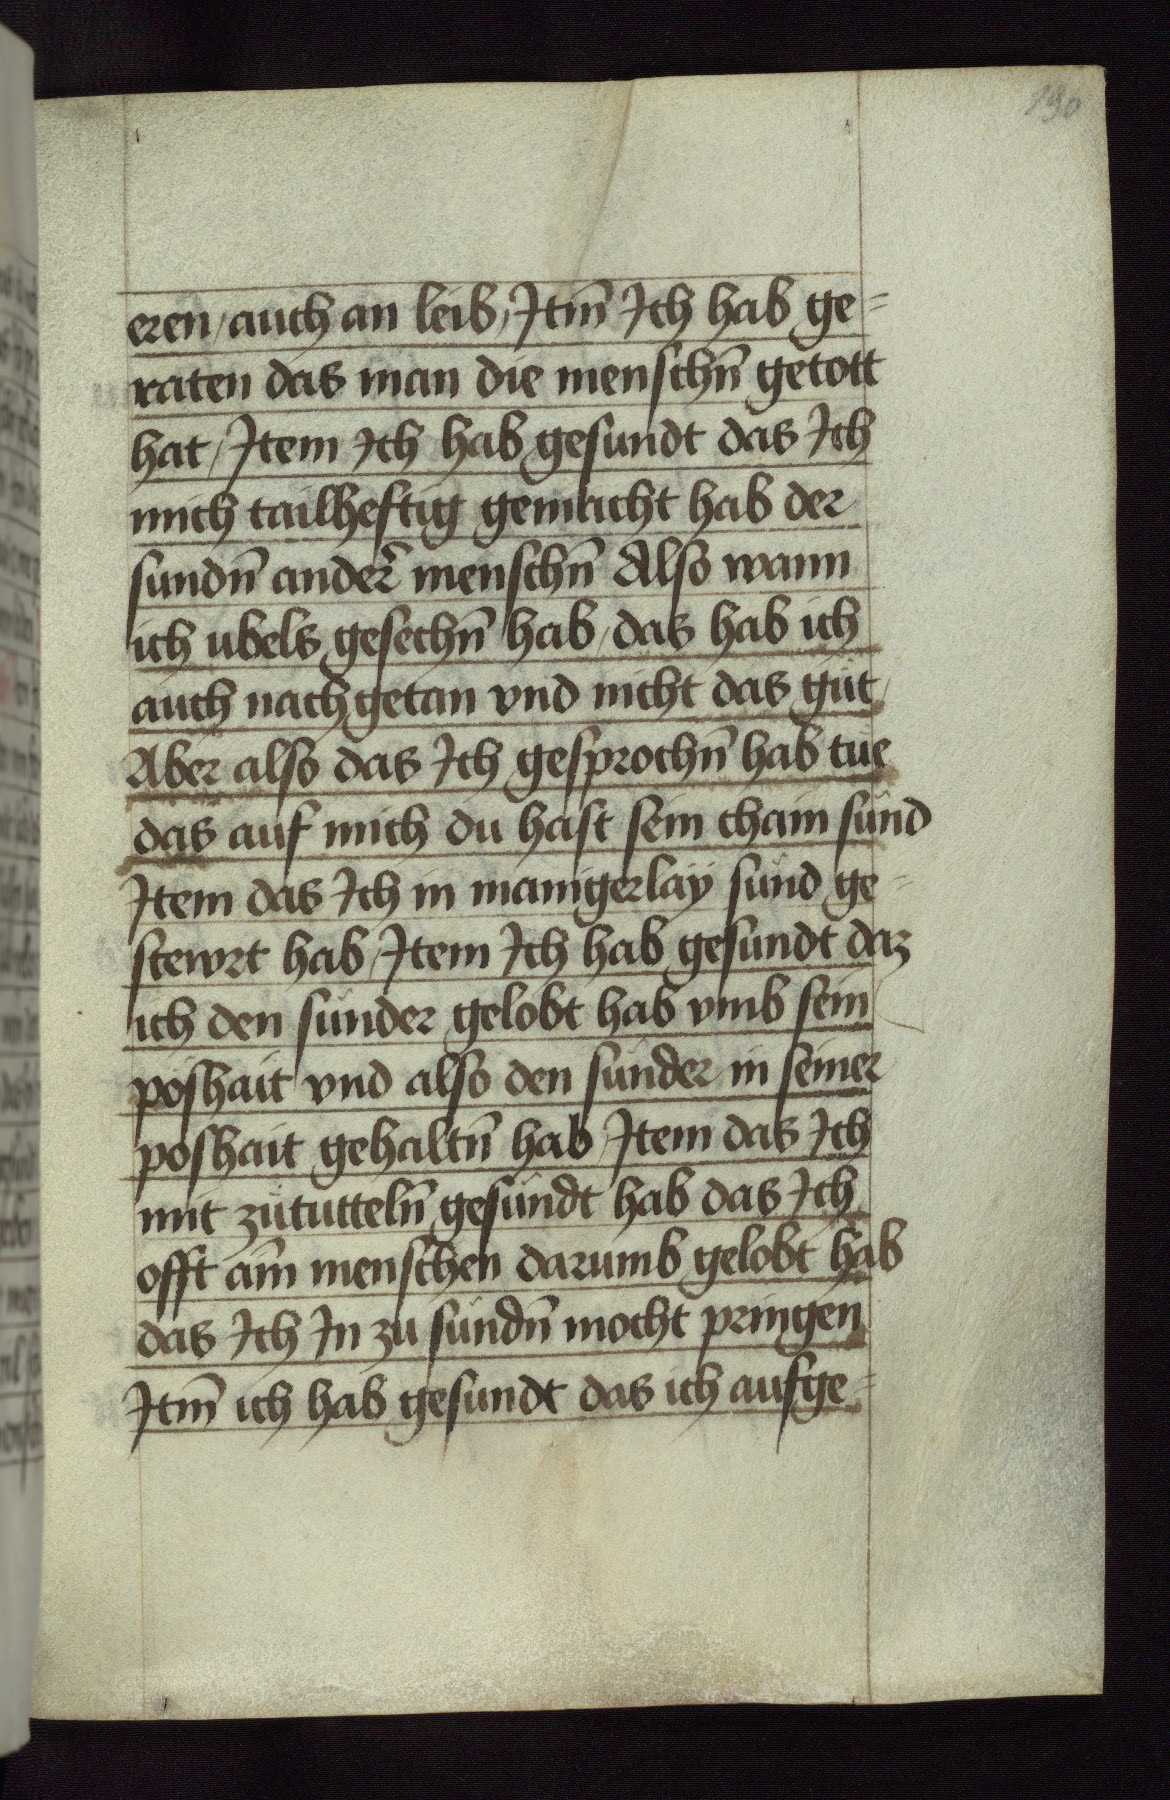 190
eren / auch an leib / Jtm̄ Jch hab ge=
raten das man die menschn̄ getott
hat / Jtem Jch hab gesundt das Jch
mich tailheftig gemacht hab der
sundn̄ander̄ menschn̄ Also wann
ich ubels gesechn̄ hab / das hab ich
auch nach getan vnd nicht das güt /
Aber also das Jch gesprochn̄ hab tue
das auf mich du hast sein chain sünd
Jtem das Jch in manigerlaÿ sünd ge=
stewrt hab / Jtem Jch hab gesundt daz
ich den sünder gelobt hab vmb sein
poshait vnd also den sünder in seiner
poshait gehaltn̄ hab / Jtem das Jch
mit zütutteln̄ gesündt hab das Jch
offt aīm menschen darumb gelobt hab
das Jch Jn zu sündn̄ mocht pringen
Jtm̄ ich hab gesundt das ich aufge=